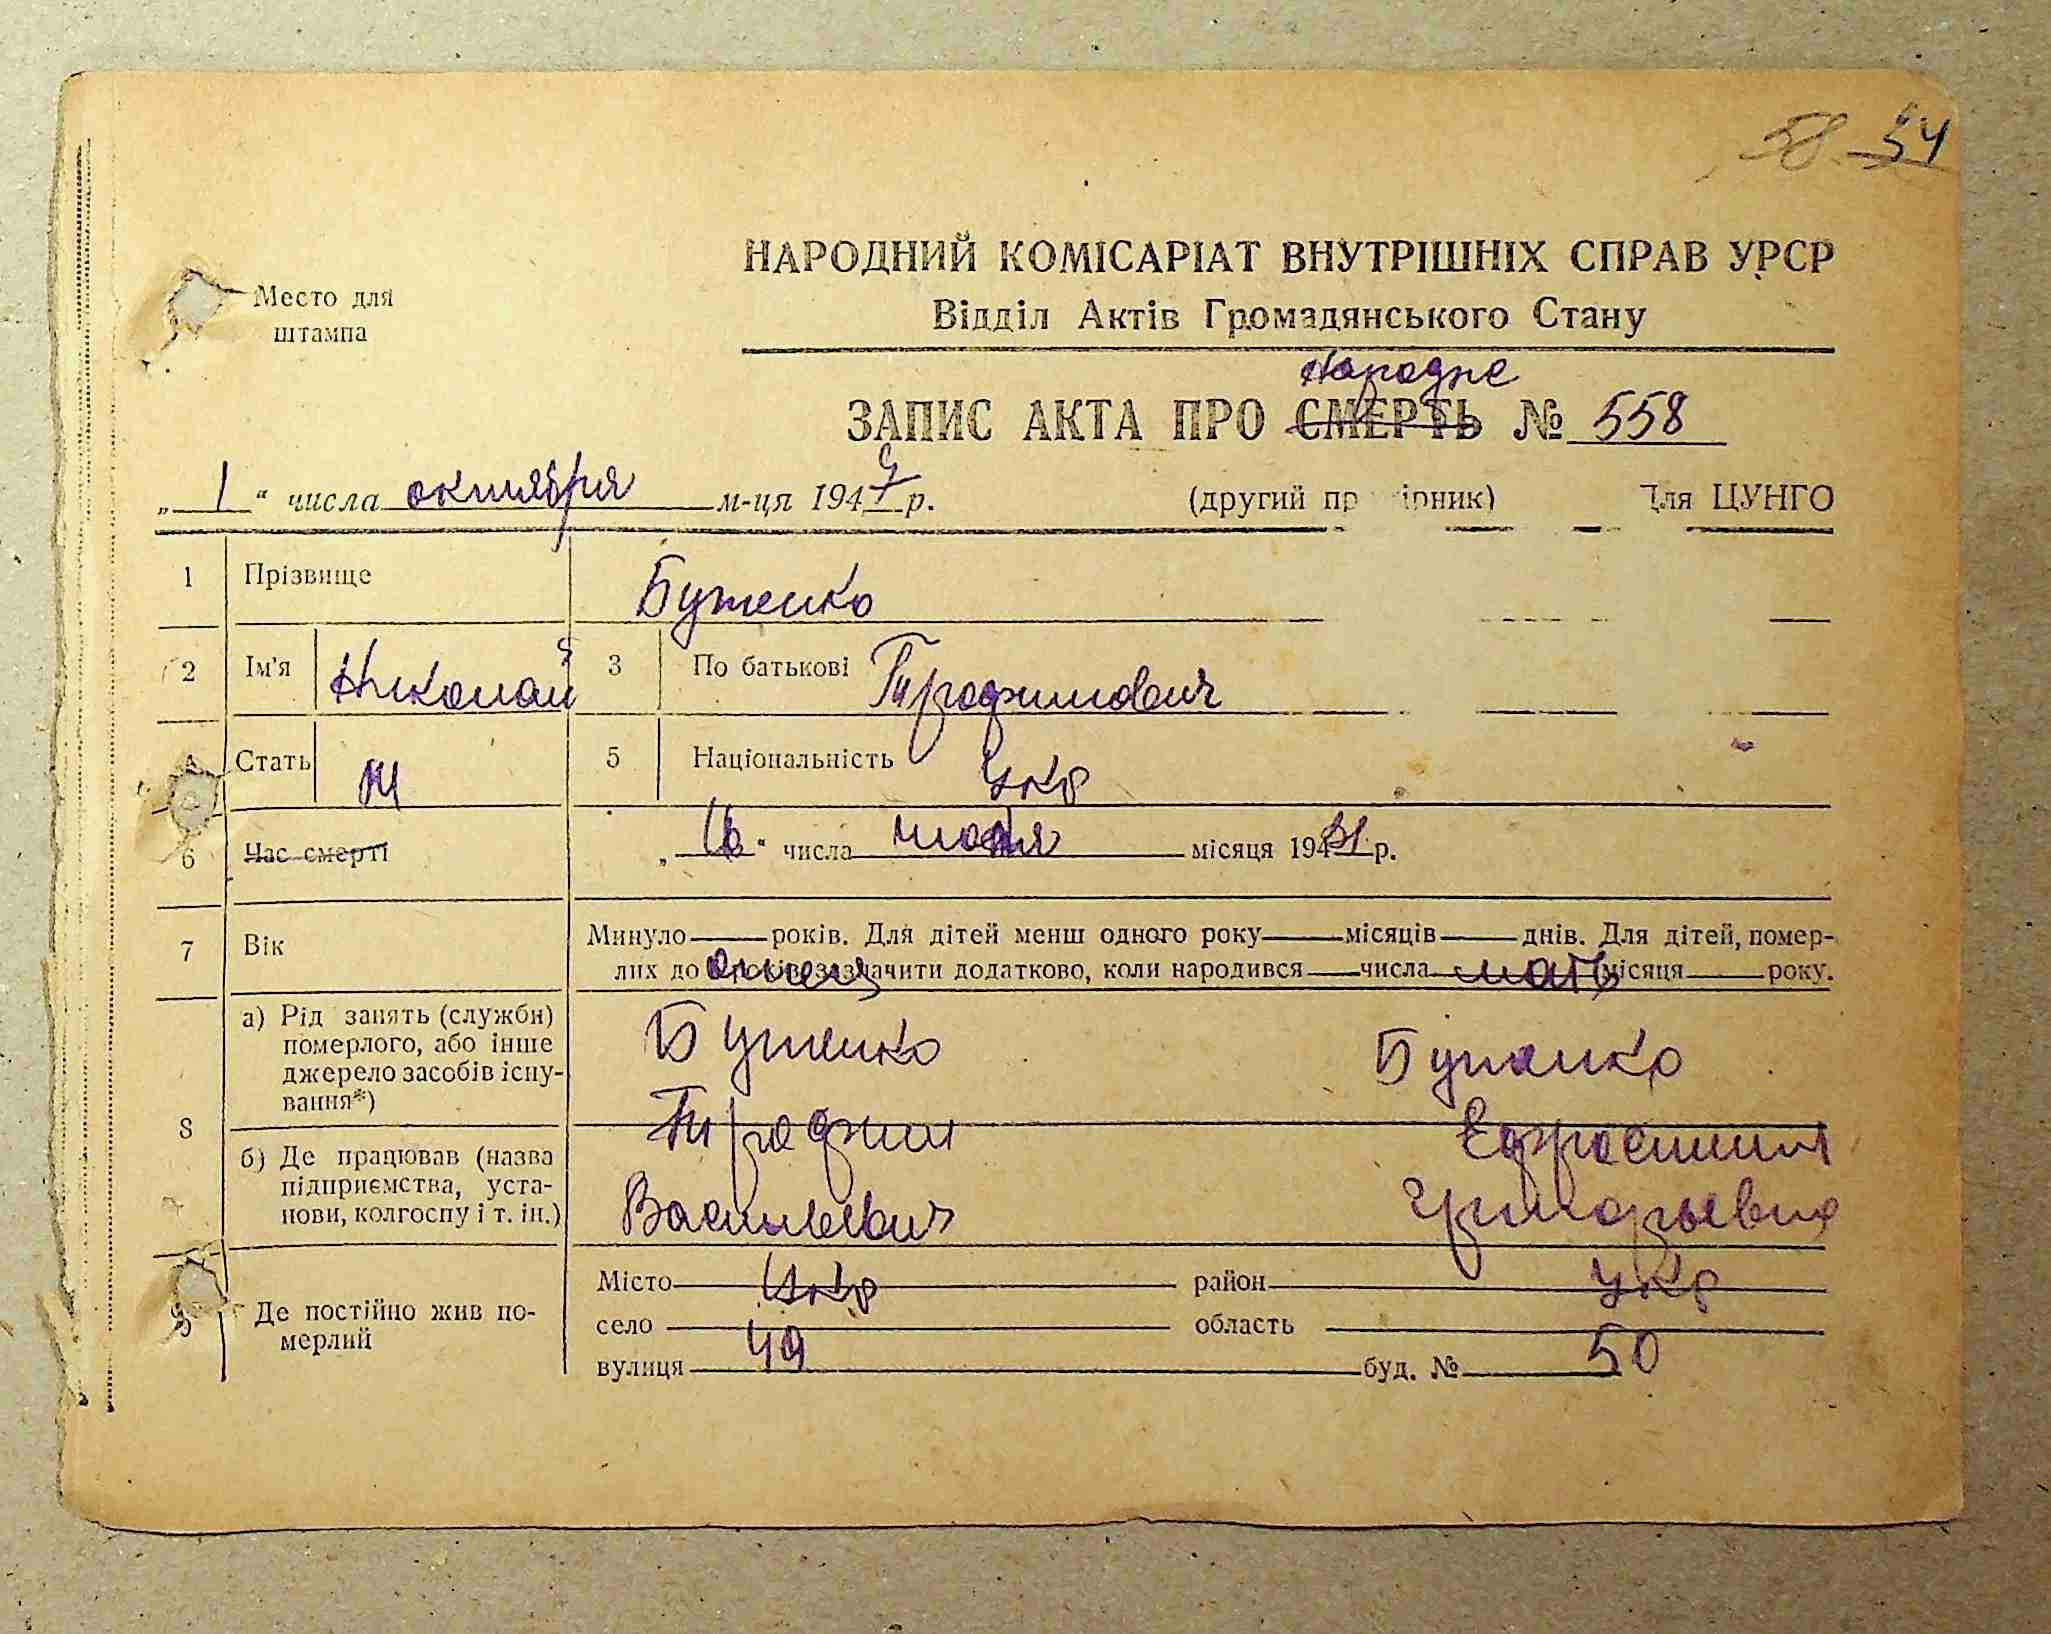 58 54
НАРОДНИЙ КОМІСАРІАТ ВНУТРІШНІХ СПРАВ УРСР
Відділ Актів Громадянського Стану
Место для
штампа
ЗАПИС АКТА ПРО СМЕРТЬ № 558
„ 1 “ числа октября м-ця 194 р.
(другий пр ірник) Для ЦУНГО
1 Прізвище Буженко
2 Ім'я Николай 3 По батькові Трофимович
4 Стать М 5 Національність Укр
6 Час смерті „ “ числа місяця 19 31 р.
7 Вік Минуло — років. Для дітей менш одного року — місяців — днів. Для дітей, помер-
лих до років зазначити додатково, коли народився — числа мать місяця — року.
8 а) Рід занять (служби)
померлого, або інше
джерело засобів існу-
вання*)
Буженко Буженко
Трофим Ефросиния
б) Де працював (назва
підприємства, уста-
нови, колгоспу і т. ін.)
Васильевич Григорьевна
9 Де постійно жив по-
мерлий
Місто Укр район Укр
село область
вулиця 49 буд. № 50